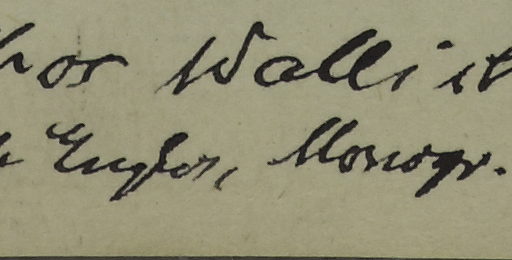 hor Wallist
Engler, Monogr.